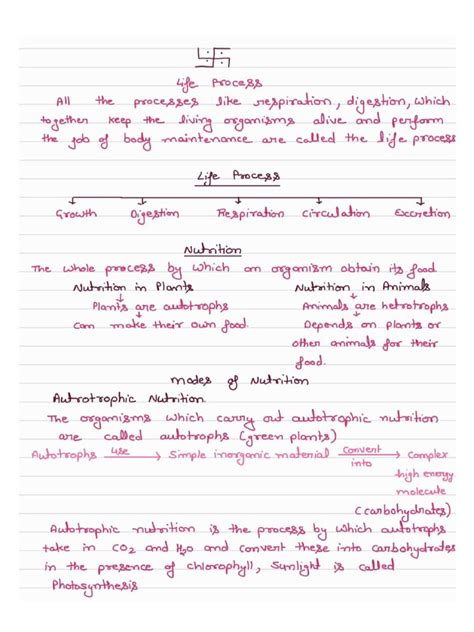 Life Process
All the processes like respiration, digestion, which
together keep the living organisms alive and perform
the job of body maintenance are called the life process
Life Process
Growth Digestion Respiration Circulation Excretion
Nutrition
The whole process by which an organism obtain its food.
Nutrition in Plants Nutrition in Animals
Plants are autotrophs Animals are hetrotrophs
Can make their own food. Depends on plants or
other animals for their
food.
modes of Nutrition
Autrotrophic Nutrition
The organisms which carry out autotrophic nutrition
are called autotrophs (green plants)
Autotrophs use Simple inorganic material Convert into Complex
high energy
molecule
(carbohydrates)
Autotrophic nutrition is the process by which autotrophs
take in CO2 and H2O and convert these into carbohydrates
in the presence of chlorophyll, sunlight is called
Photosynthesis